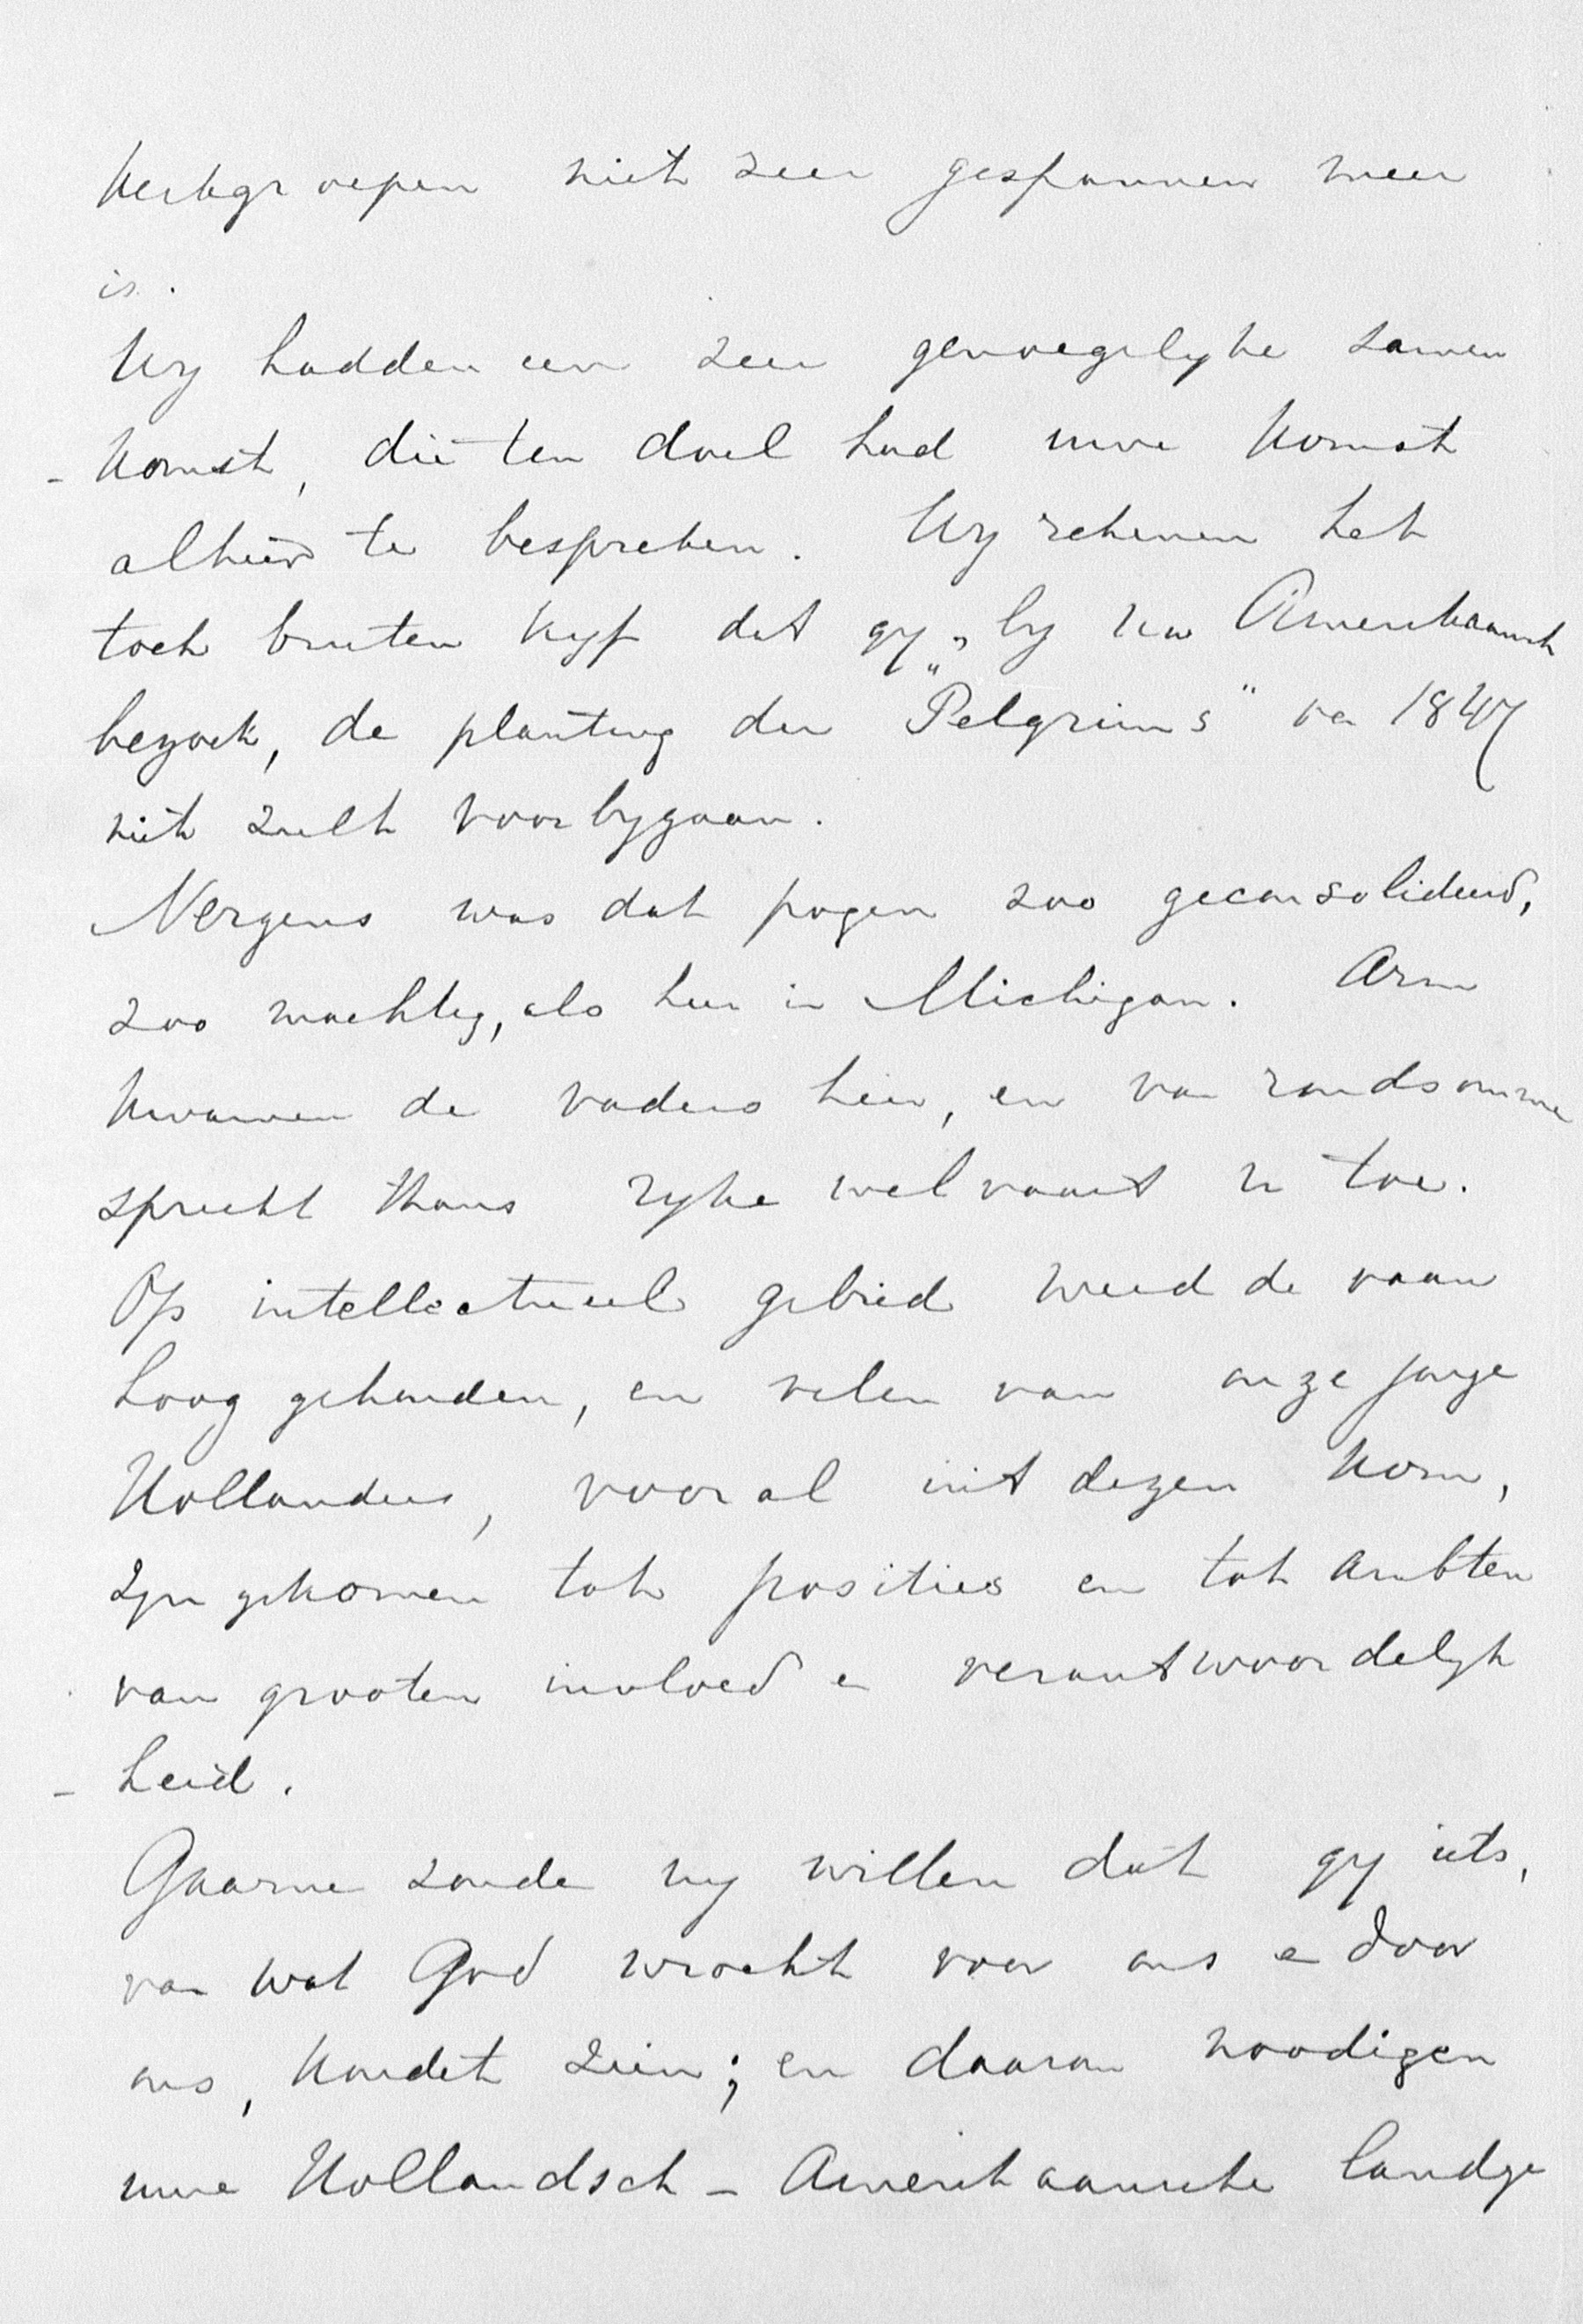 Kerkgroepen niet zeer gespannen meer
is.
Wy hadden een zeer genoegelyke samen
- komst, die ten doel had uwe komst
alhier te bespreken. Wy rekenen het
toch buiten kyf dat gy, by uw Amerikaansch
bezoek, de planting der "Pelgrims" van 1847
niet zult voorbygaan.
Nergens was dat pogen zoo geconsolideerd,
zoo machtig, als hier in Michigan. Arm
kwamen de vaders hier, en van rondsomme
spreekt thans ryke welvaart u toe.
Op intellectueel gebied werd de vaan
hoog gehouden, en velen van onze jonge
Hollanders, vooral uit dezen kom,
zyn gekomen tot posities en tot ambten
van grooten invloed en verantwoordelyk
- heid.
Gaarne zoude wy willen dat gy iets,
van wat God wrocht voor ons en door
ons, kondet zien; en daarom noodigen
uwe Hollandsch - Amerikaansche landge